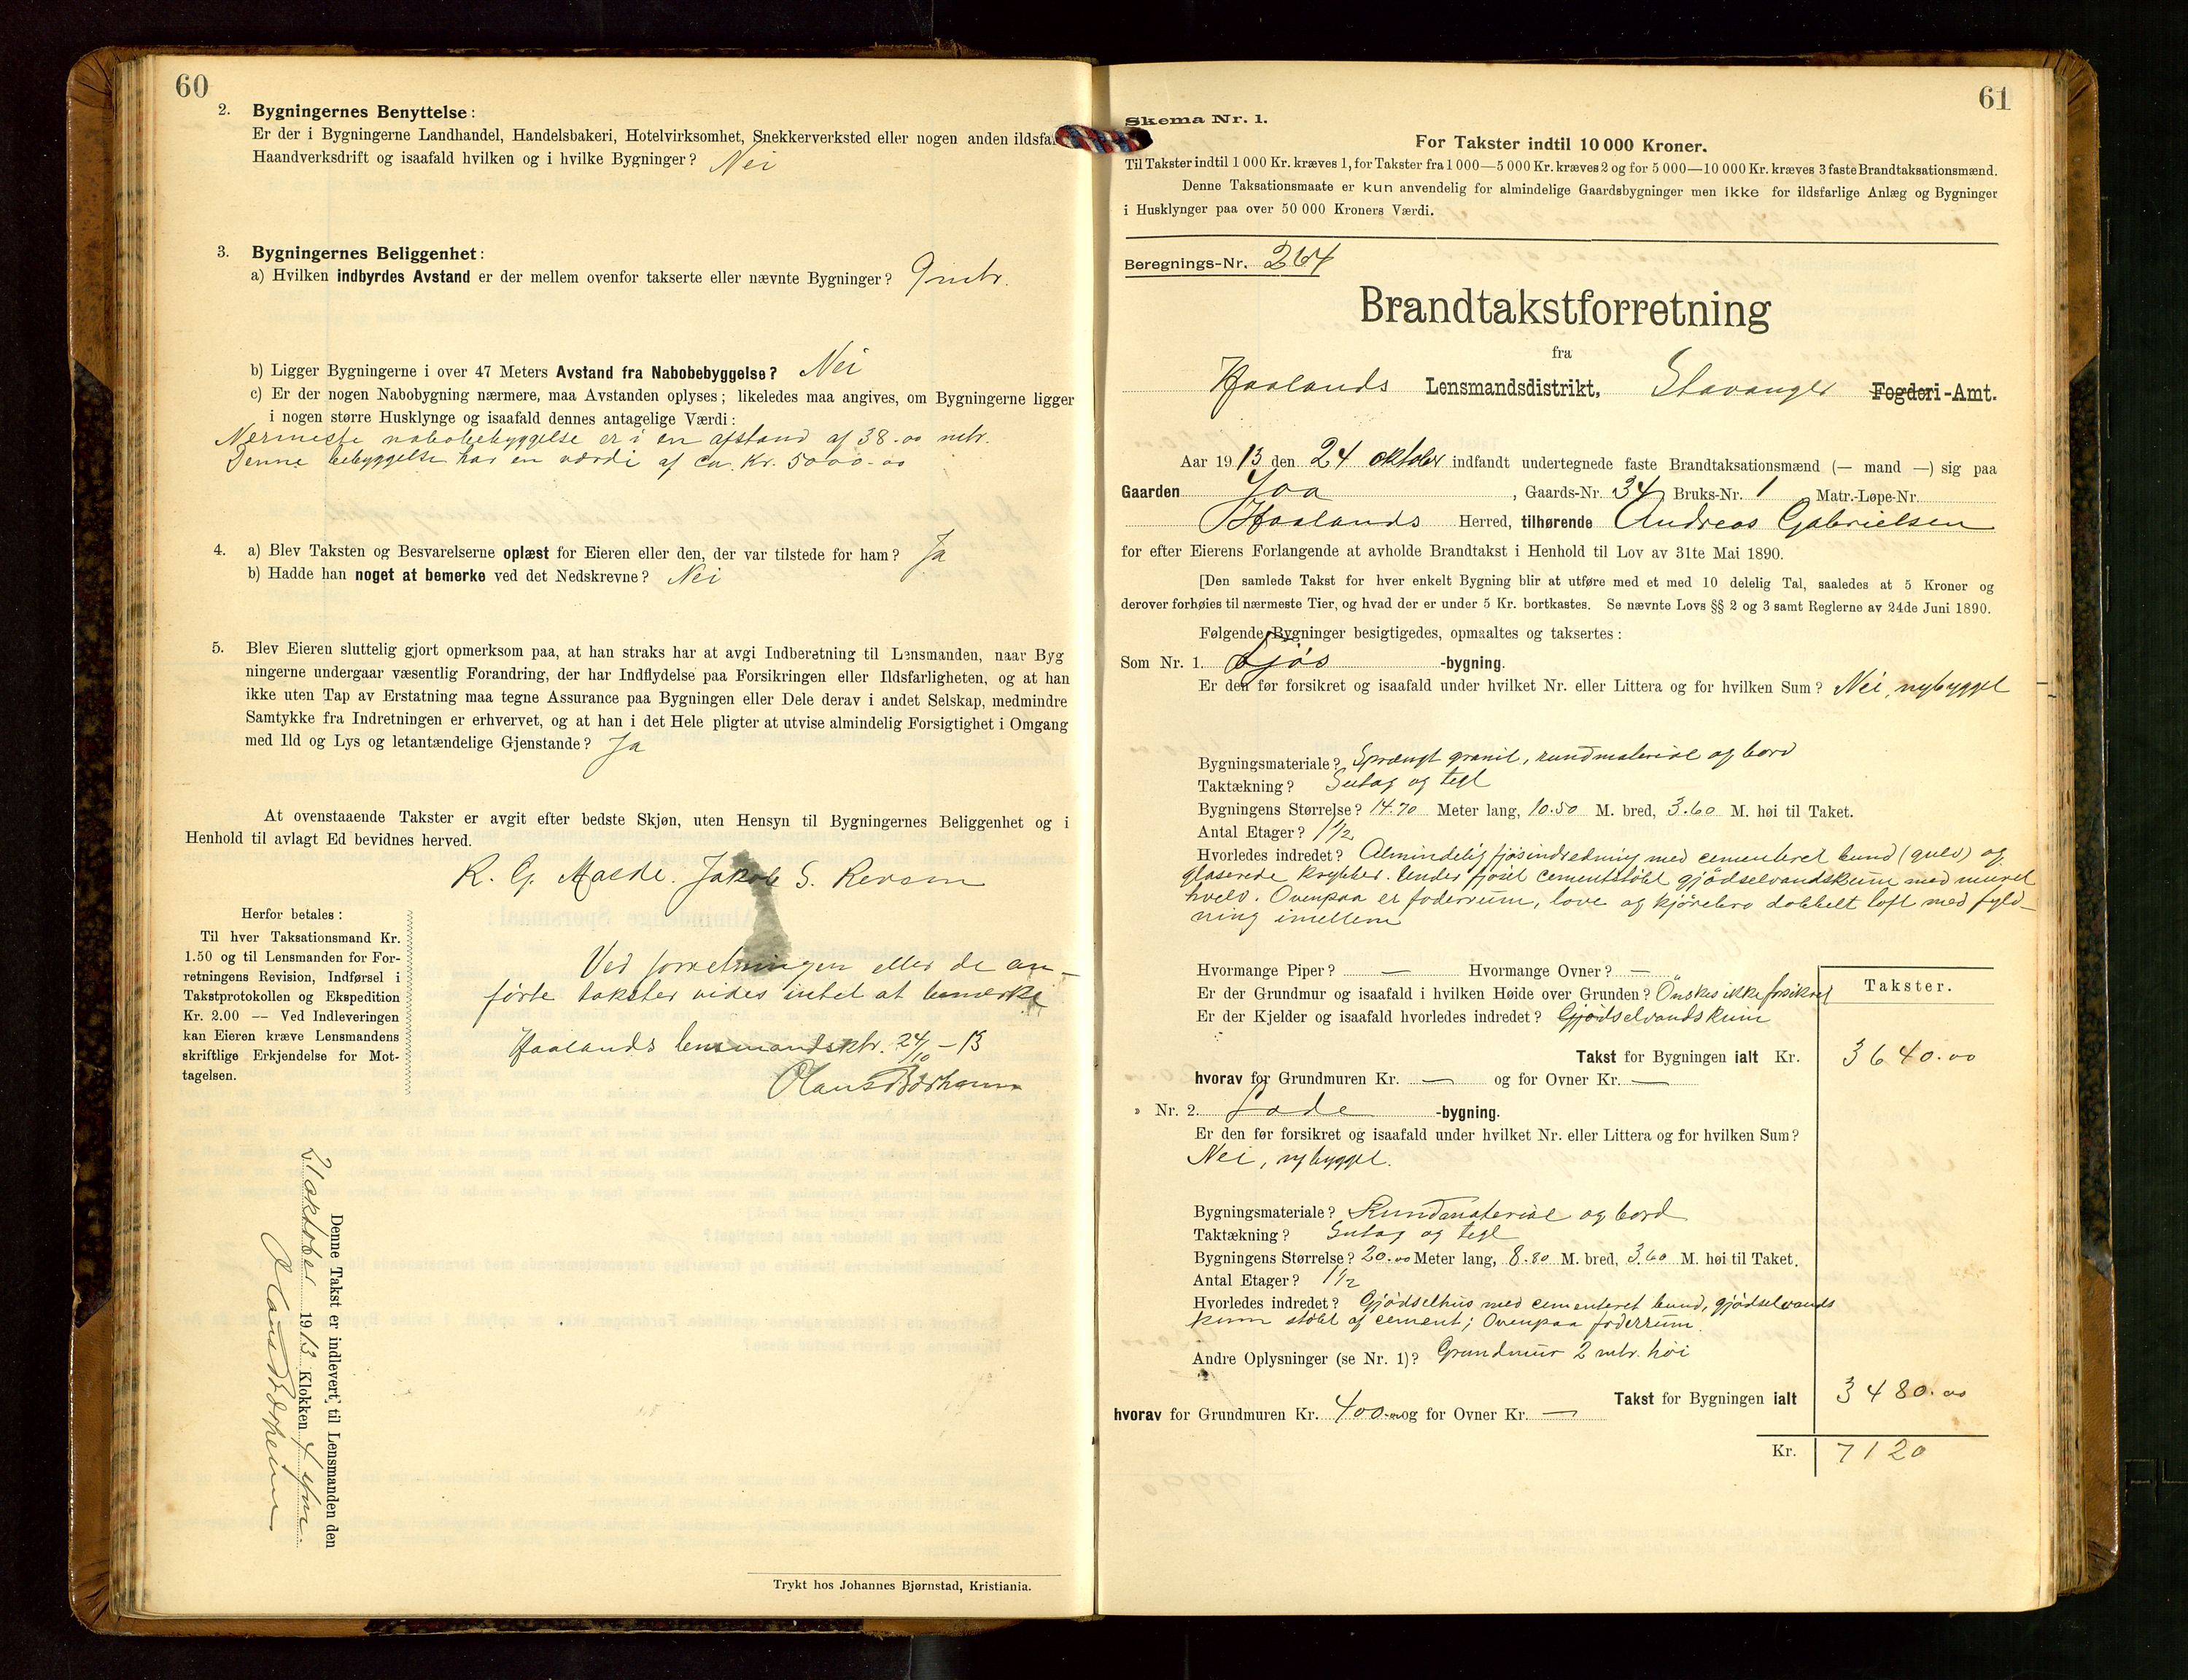 60
2. Bygningernes Benyttelse:
Er der i Bygningerne Landhandel, Handelsbakeri, Hotelvirksomhet, Snekkerverksted eller nogen anden ildsfa
Haandverksdrift og isaafald hvilken og i hvilke Bygninger? Nei
3. Bygningernes Beliggenhet:
a) Hvilken indbyrdes Avstand er der mellem ovenfor takserte eller nævnte Bygninger? 9 mtr.
b) Ligger Bygningerne i over 47 Meters Avstand fra Nabobebyggelse? Nei
c) Er der nogen Nabobygning nærmere, maa Avstanden oplyses; likeledes maa angives, om Bygningerne ligger
i nogen større Husklynge og isaafald dennes antagelige Værdi:
Nærmeste nabobebyggelse er i en afstand af 38.00 mtr.
Denne bebyggelse har en værdi af ca. Kr. 5000.00
4. a) Blev Taksten og Besvarelserne oplæst for Eieren eller den, der var tilstede for ham? Ja
b) Hadde han noget at bemerke ved det Nedskrevne? Nei
5. Blev Eieren sluttelig gjort opmerksom paa, at han straks har at avgi Indberetning til Lensmanden, naar Byg
ningerne undergaar væsentlig Forandring, der har Indflydelse paa Forsikringen eller Ildsfarligheten, og at han
ikke uten Tap av Erstatning maa tegne Assurance paa Bygningen eller Dele derav i andet Selskap, medmindre
Samtykke fra Indretningen er erhvervet, og at han i det Hele pligter at utvise almindelig Forsigtighet i Omgang
med Ild og Lys og letantændelige Gjenstande? Ja
At ovenstaaende Takster er avgit efter bedste Skjøn, uten Hensyn til Bygningernes Beliggenhet og i
Henhold til avlagt Ed bevidnes herved.
R. G. Malde. Jakob S.
Herfor betales:
Til hver Taksationsmand Kr.
1.50 og til Lensmanden for For-
retningens Revision, Indførsel i
Takstprotokollen og Ekspedition
Kr. 2.00 — Ved Indleveringen
kan Eieren kræve Lensmandens
skriftlige Erkjendelse for Mot-
tagelsen.
Ved forretningen eller de an-
førte takster vides intet at bemærke
Haalands lensmandsktr. 24/10 – 13
Denne Takst er indlevert til Lensmanden den
oktober 1913 Klokken 4
Trykt hos Johannes Bjørnstad, Kristiania.
61
Skema Nr. 1.
For Takster indtil 10 000 Kroner.
Til Takster indtil 1 000 Kr. kræves 1, for Takster fra 1 000—5 000 Kr. kræves 2 og for 5 000—10 000 Kr. kræves 3 faste Brandtaksationsmænd.
Denne Taksationsmaate er kun anvendelig for almindelige Gaardsbygninger men ikke for ildsfarlige Anlæg og Bygninger
i Husklynger paa over 50 000 Kroners Værdi.
Beregnings-Nr. 264
Brandtakstforretning
fra
Haalands Lensmandsdistrikt, Stavanger Fogderi-Amt.
Aar 1913 den 24 oktober indfandt undertegnede faste Brandtaksationsmænd (— mand —) sig paa
Gaarden Joa, Gaards-Nr. 34 Bruks-Nr. 1 Matr.-Løpe-Nr.
Haalands Herred, tilhørende Andreas Gabrielsen
for efter Eierens Forlangende at avholde Brandtakst i Henhold til Lov av 31te Mai 1890.
[Den samlede Takst for hver enkelt Bygning blir at utføre med et med 10 delelig Tal, saaledes at 5 Kroner og
derover forhøies til nærmeste Tier, og hvad der er under 5 Kr. bortkastes. Se nævnte Lovs §§ 2 og 3 samt Reglerne av 24de Juni 1890.
Følgende Bygninger besigtigedes, opmaaltes og taksertes:
Som Nr. 1. Fjøs -bygning.
Er den før forsikret og isaafald under hvilket Nr. eller Littera og for hvilken Sum? Nei, nybygget
Bygningsmateriale? Sprængt granit, rundmateriale og bord
Taktækning? Sutag og tegl
Bygningens Størrelse? 14.70 Meter lang, 10.50 M. bred, 3.60 M. høi til Taket.
Antal Etager? 1½
Hvorledes indredet? Almindelig fjøsindredning med cementeret bund (gulv) og
glaserede krybber. Under fjøset cementstøbt gjødselvandskum med muret
hvelv. Ovenpaa er foderrum, love og kjørebro dobbelt loft med fyld-
ning imellem
Hvormange Piper? — Hvormange Ovner? —
Er der Grundmur og isaafald i hvilken Høide over Grunden? Ønskes ikke forsikret
Er der Kjelder og isaafald hvorledes indredet? Gjødselvandskum
Takster.
Takst for Bygningen ialt Kr. 3640.00
hvorav for Grundmuren Kr. — og for Ovner Kr. —
» Nr. 2. Lade -bygning.
Er den før forsikret og isaafald under hvilket Nr. eller Littera og for hvilken Sum?
Nei, nybygget.
Bygningsmateriale? Rundmateriale og bord
Taktækning? Sutag og tegl
Bygningens Størrelse? 20.00 Meter lang, 8.80 M. bred, 3.60 M. høi til Taket.
Antal Etager? 1½
Hvorledes indredet? Gjødselhus med cementeret bund, gjødselvands
kum støbt af cement; Ovenpaa foderrum.
Andre Oplysninger (se Nr. 1)? Grundmur 2 mtr. høi
Takst for Bygningen ialt 3480.00
hvorav for Grundmuren Kr. 400.00 og for Ovner Kr. —
Kr. 7120